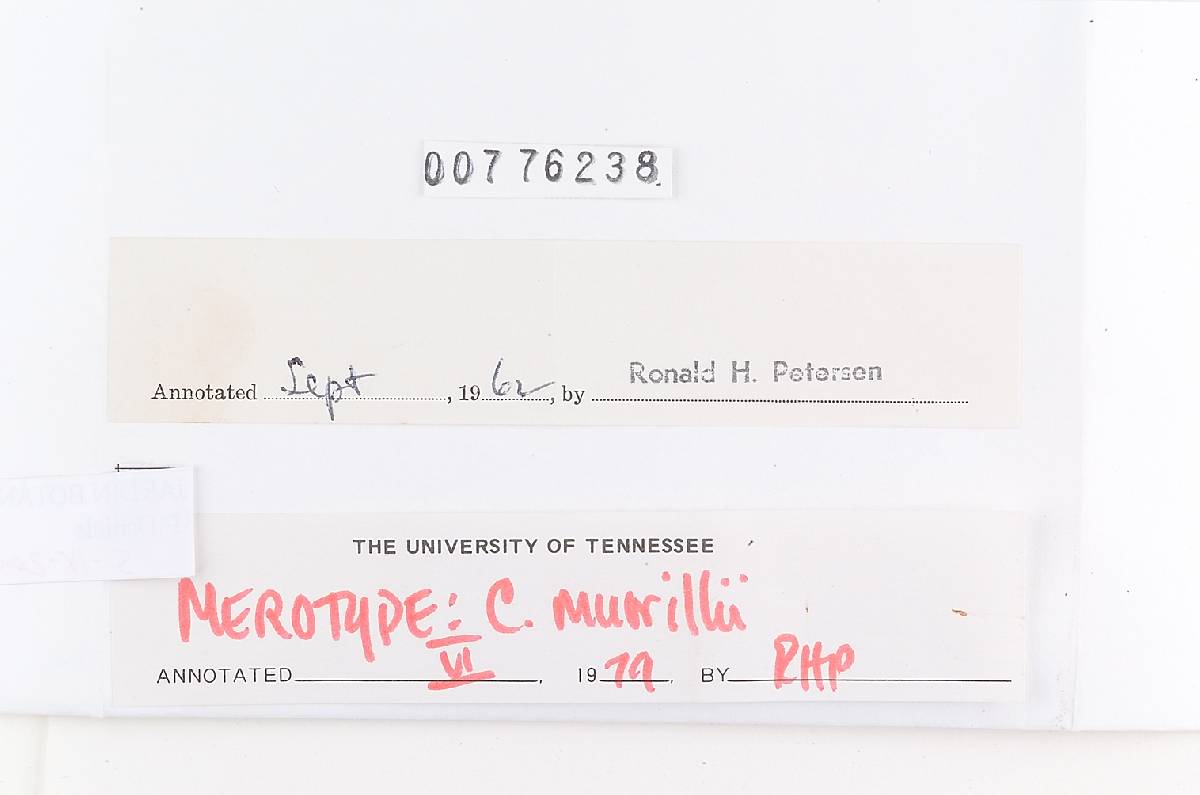 00776238
Annotated Sept, 1962, by Ronald H. Petersen
THE UNIVERSITY OF TENNESSEE
MEROTYPE: C. murrillii
ANNOTATED VI, 1979, BY RHP